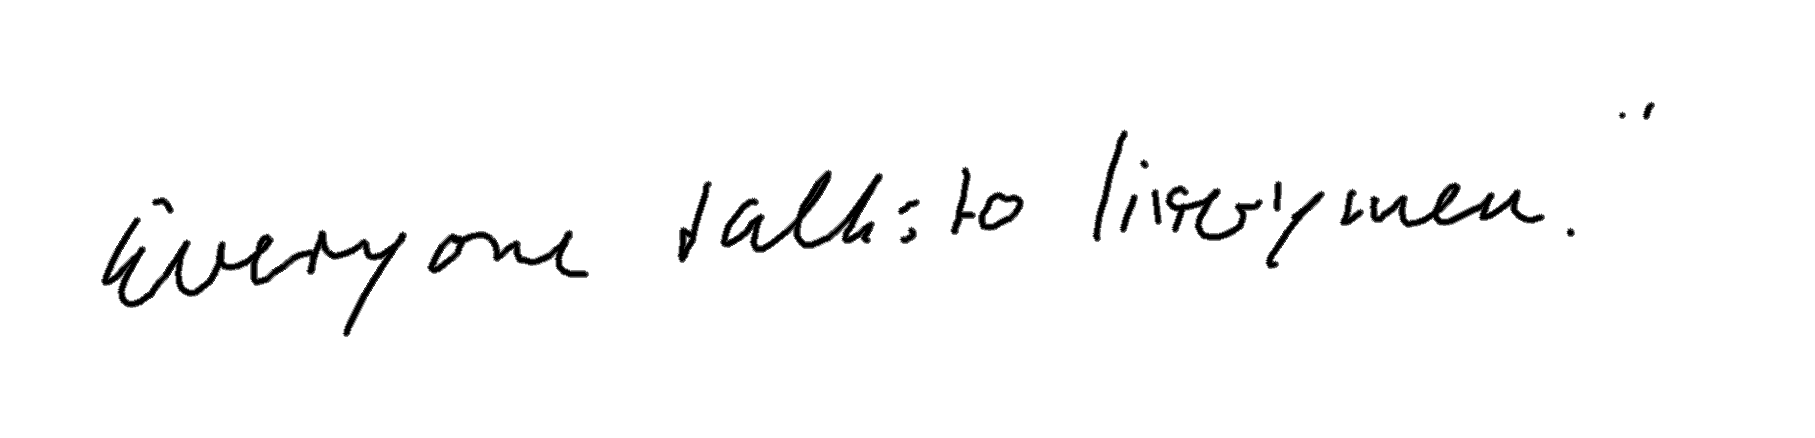 Everyone talks to liverymen."